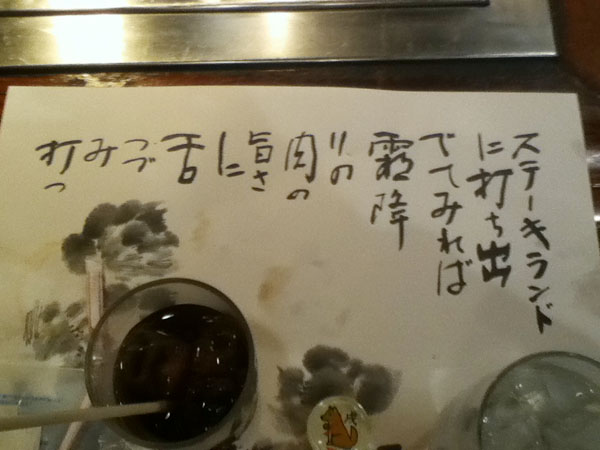 ステーキランド
に打ち出
でてみれば
霜降
りの
肉の
旨さ
に
舌
つづ
みみ
打つ